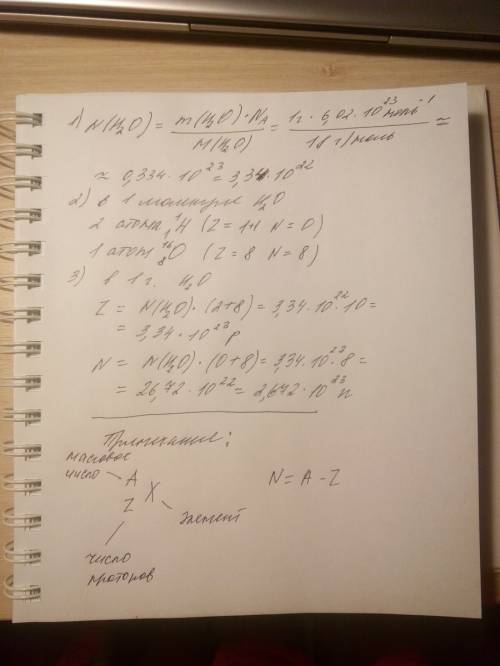 1) N(H₂O) = m(H₂O)·N_A / M(H₂O) = 1г · 6,02 · 10²³ моль⁻¹ / 18 г/моль ≈
≈ 0,334 · 10²³ = 3,34 · 10²²
2) в 1 молекуле H₂O
2 атома ¹₁H (Z = 1 N = 0)
1 атом ¹⁶₈O (Z = 8 N = 8)
3) в 1 г. H₂O
Z = N(H₂O) · (2+8) = 3,34 · 10²² · 10 =
= 3,34 · 10²³ p
N = N(H₂O) · (0+8) = 3,34 · 10²² · 8 =
= 26,72 · 10²² = 2,672 · 10²³ n
Примечание:
массовое
число A
Z X N = A - Z
элемент
число
протонов